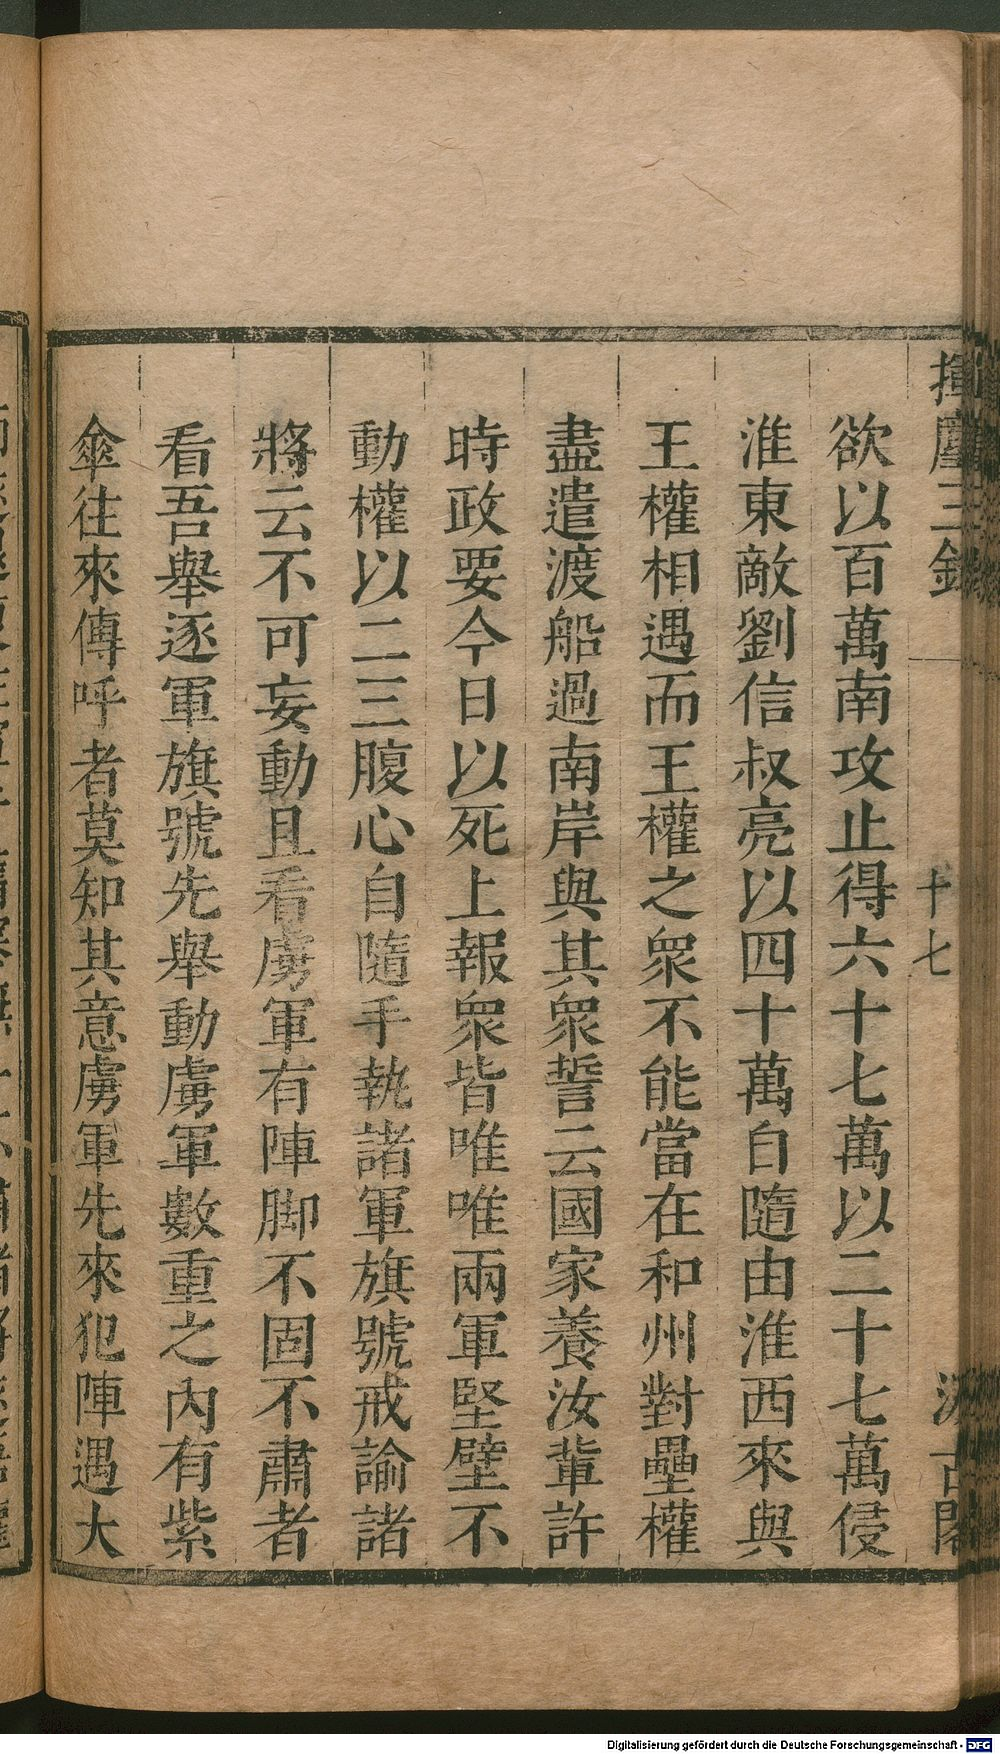 揮麈三錄
十七
汲古閣
欲以百萬南攻止得六十七萬以二十七萬侵
淮東敵劉信叔亮以四十萬自隨由淮西來與
王權相遇而王權之眾不能當在和州對壘權
盡遣渡船過南岸與其眾誓云國家養汝輩許
時政要今日以死上報眾皆唯唯兩軍堅壁不
動權以二三腹心自隨手執諸軍旗號戒諭諸
將云不可妄動且看虜軍有陣脚不固不肅者
看吾舉逐軍旗號先舉動虜軍數重之內有紫
傘往來傳呼者莫知其意虜軍先來犯陣遇大
Digitalisierung gefördert durch die Deutsche Forschungsgemeinschaft - DFG